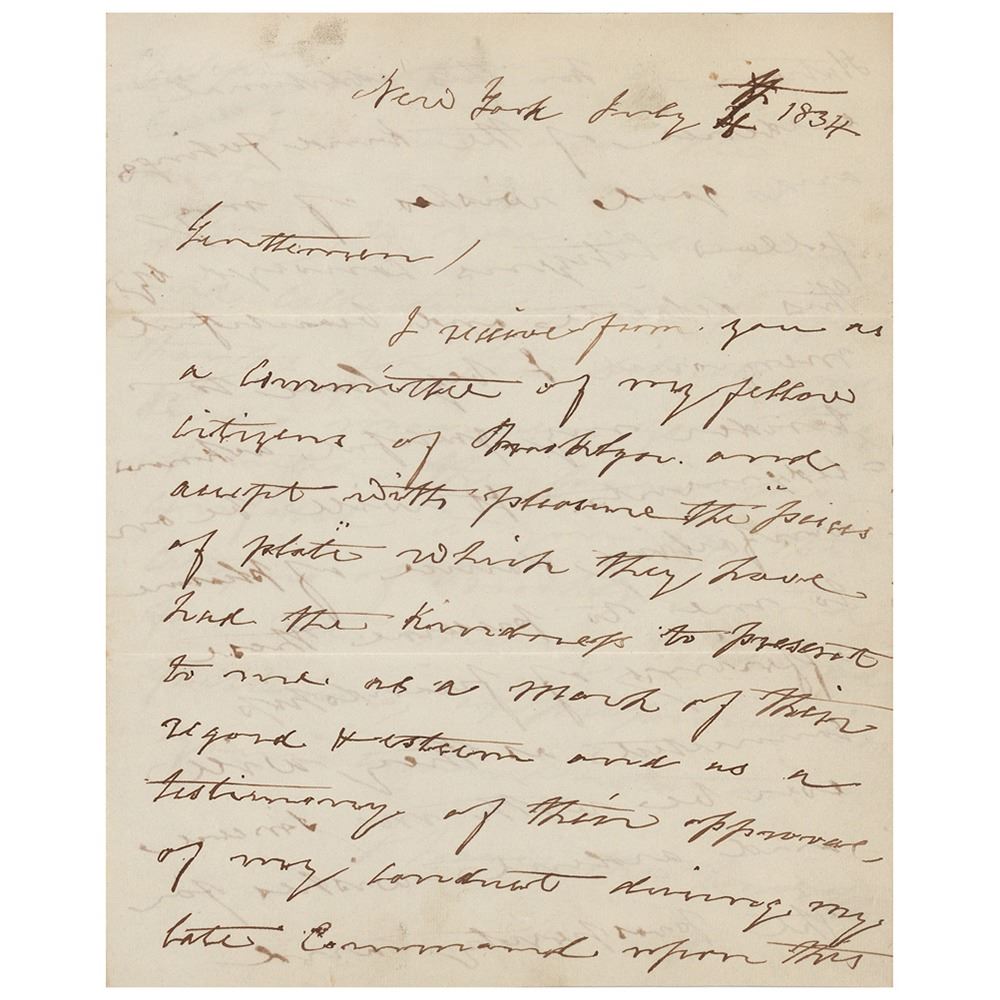 New York July 4 1834
Gentlemen /
I receive from you as
a Committee of my fellow
citizens of Brooklyn and
accept with pleasure the "pieces
of plate" which they have
had the Kindness to present
to me as a mark of their
regard & esteem and as a
testimony of their approval
of my conduct during my
late Command upon this